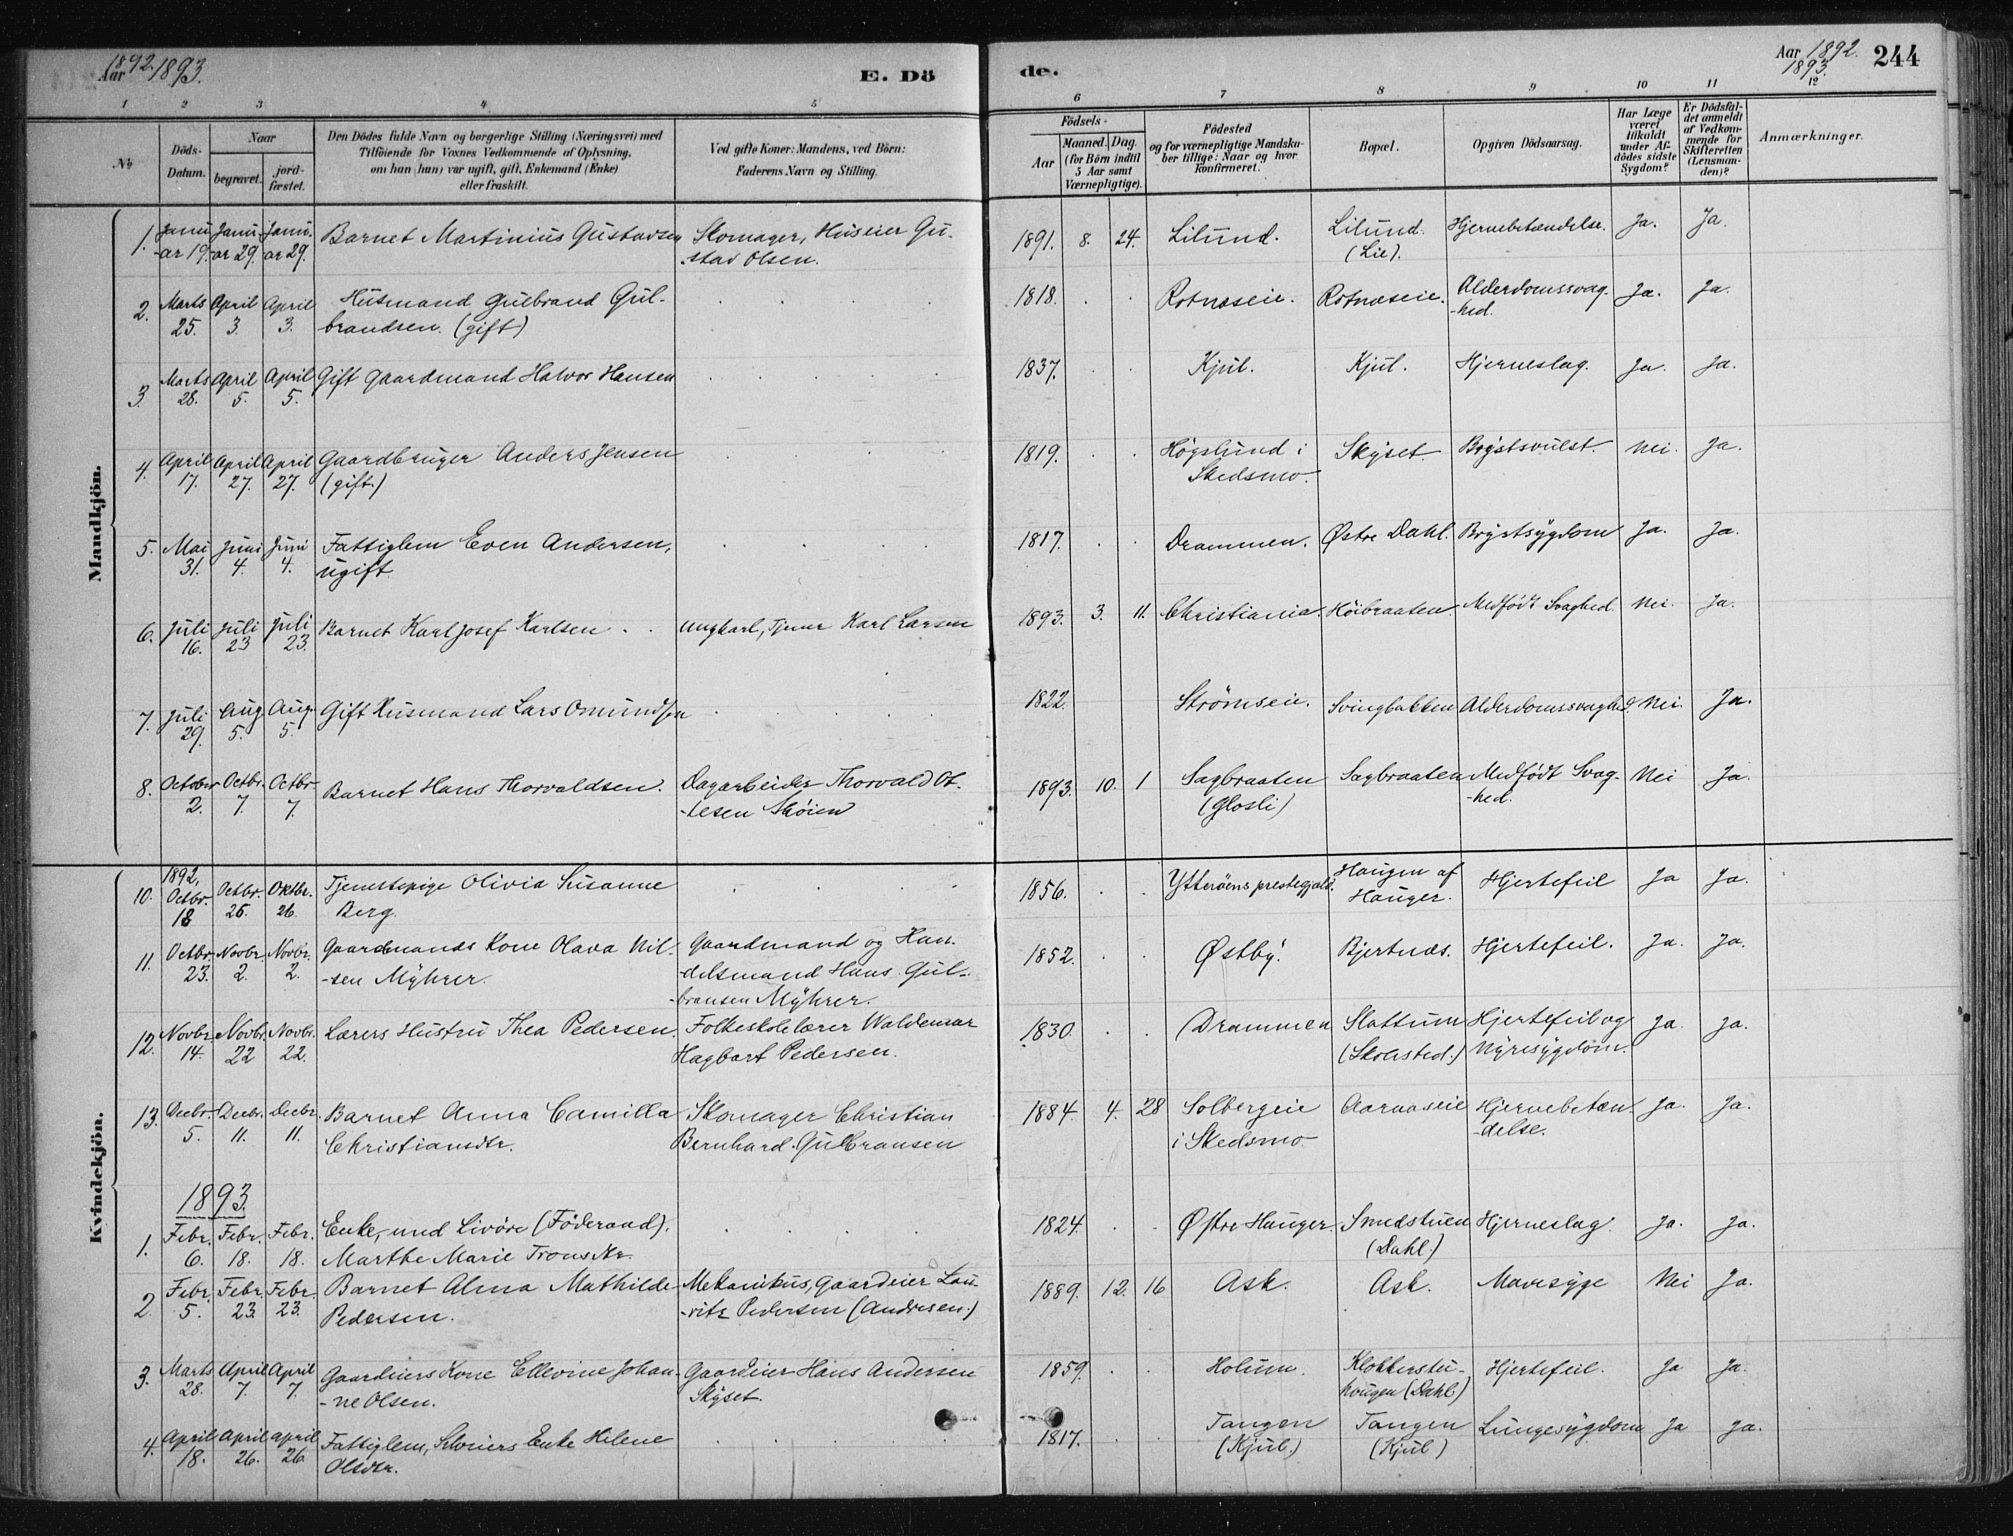 Aar 1892. 1893.
E. Dö
de.
Aar 1892. 1893. 244
1 2 3 4 5 6 7 8 9 10 11 12
No
Döds-Datum.
Naar
begravet.
jord-fæstet.
Den Dödes fulde Navn og borgerlige Stilling (Næringsvei) med
Tilföiende for Voxnes Vedkommende af Oplysning,
om han (hun) var ugift, gift, Enkemand (Enke)
eller fraskilt.
Ved gifte Koner: Mandens, ved Börn:
Faderens Navn og Stilling.
Födsels-
Aar
Maaned. Dag.
(for Börn indtil
5 Aar samt
Værnepligtige).
Födested
og for værnepligtige Mandska-
ber tillige: Naar og hvor
konfirmeret.
Bopæl.
Opgiven Dödsaarsag.
Har Læge
været
tilkaldt
under Af-
dödes sidste
Sygdom?
Er Dödsfal-
det anmeldt
af Vedkom-
mende for
Skifteretten
(Lensman-
den)?
Anmærkninger.
Mandkjön.
1. Janu-ar 19. Janu-ar 29. Janu-ar 29. Barnet Martinius Gustavsen Skomager, Huseier Gu-
stav Olsen. 1891. 8. 24. Lilund. Lilund. (Lie). Hjernebetændelse. Ja. Ja.
2. Marts 25. April 3. April 3. Husmand Gulbrand Gul-
brandsen. (gift) 1818. Rotnæseie. Rotnæseie. Alderdomssvag-
-hed. Ja. Ja.
3. Marts 28. April 5. April 5. Gift Gaardmand Halvor Hansen 1837. Kjul. Kjul. Hjerneslag. Ja. Ja.
4. April 17. April 27. April 27. Gaardbruger Anders Jensen
(gift.) 1819. Högslund i
Skedsmo. Skyset. Brystsvulst. Nei. Ja.
5. Mai 31. Juni 4. Juni 4. Fattiglem Even Andersen,
ugift. 1817. Drammen. Østre Dahl. Brystsygdom Ja. Ja.
6. Juli 16. Juli 23 Juli 23. Barnet Karl Josef Karlsen. Ungkarl, Tjener Karl Larsen 1893. 3. 11. Christiania. Höibraaten. Medfödt Svaghed. Nei. Ja.
7. Juli 29. Aug. 5. Aug. 5. Gift Husmand Lars Omundsen 1822. Strömseie. Svingbakken Alderdomssvaghed. Nei. Ja.
8. October 2. Octbr. 7. Octbr 7. Barnet Hans Thorvaldsen. Dagarbeider Thorvald Ot-
-tesen Skøien 1893. 10. 1 Sagbraaten
(Glosli) Sagbraaten Medfödt Svag-
-hed. Nei Ja.
Kvindekjön.
1892,
10. Octbr. 18 Octbr. 26. Oktbr. 26. Tjenestepige Olivia Susanne
Berg. 1856. Ytteröens prestegjeld. Haugen af
Hauger. Hjertefeil Ja Ja.
11. Octbr. 23. Novbr. 2. Novbr. 2. Gaardmands Kone Olava Nil-
-sen Myhrer. Gaardmand og Han-
-delsmand Hans Gul-
-bransen Myhrer. 1852. Østby. Bjertnæs. Hjertefeil. Ja. Ja.
12. Novbr. 14. Novbr. 22 Novbr. 22. Lærers Hustru Thea Pedersen. Folkeskolelærer Waldemar
Hagbart Pedersen. 1830. Drammen Slattum
(Skolested.) Hjertefeil og
Nyresygdom. Ja. Ja.
13. Decbr. 5. Decbr. 11. Decbr. 11. Barnet Anna Camilla
Christiansdtr. Skomager Christian
Bernhard Gulbransen 1884. 4. 28 Solbergeie
i Skedsmo Aaraaseie Hjernebetæn-
-delse. Ja. Ja.
1893.
1. Febr. 6. Febr. 18. Febr. 18. Enke, und Livöre (Föderaad).
Marthe Marie Tronsdtr. 1824. Østre Hauger. Smedstuen
(Dahl.) Hjerneslag. Ja. Ja.
2. Febr. 5. Febr. 23. Febr. 23. Barnet Alma Mathilde
Pedersen. Mekanikus, Gaardeier Lau-
-ritz Pedersen (Andresen.) 1889. 12. 16 Ask. Ask. Mavesyge Nei Ja.
3. Marts 28. April 7. April 7. Gaardeiers Kone Ellevine Johan-
-ne Olsen. Gaardeier Hans Andersen
Skyset. 1859. Holum. Klokkerstu-
haugen (Dahl) Hjertefeil. Ja Ja.
4. April 18. April 26. April 26. Fattiglem, Enke Helene
Olsdtr. 1817. Tangen
(Kjul.) Tangen
(Kjul) Lungesygdom Ja Ja.